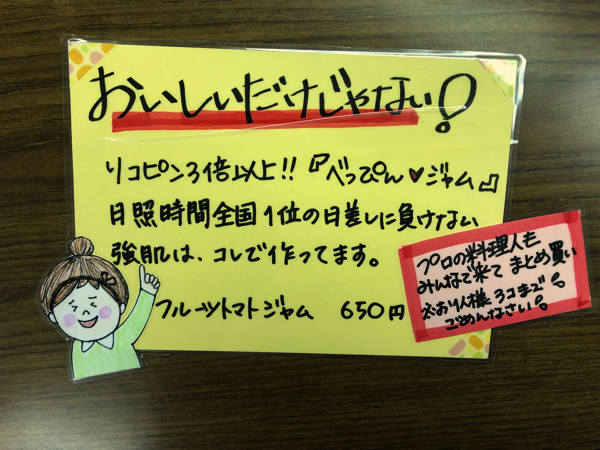 おいしいだけじゃない!
リコピン3倍以上!!『べっぴん♥ジャム』
日照時間全国1位の日差しに負けない
強肌は、コレで作ってます。
フルーツトマトジャム 650円
プロの料理人も
みんなで来て まとめ買い
※お1人様 3コまで
ごめんなさい!